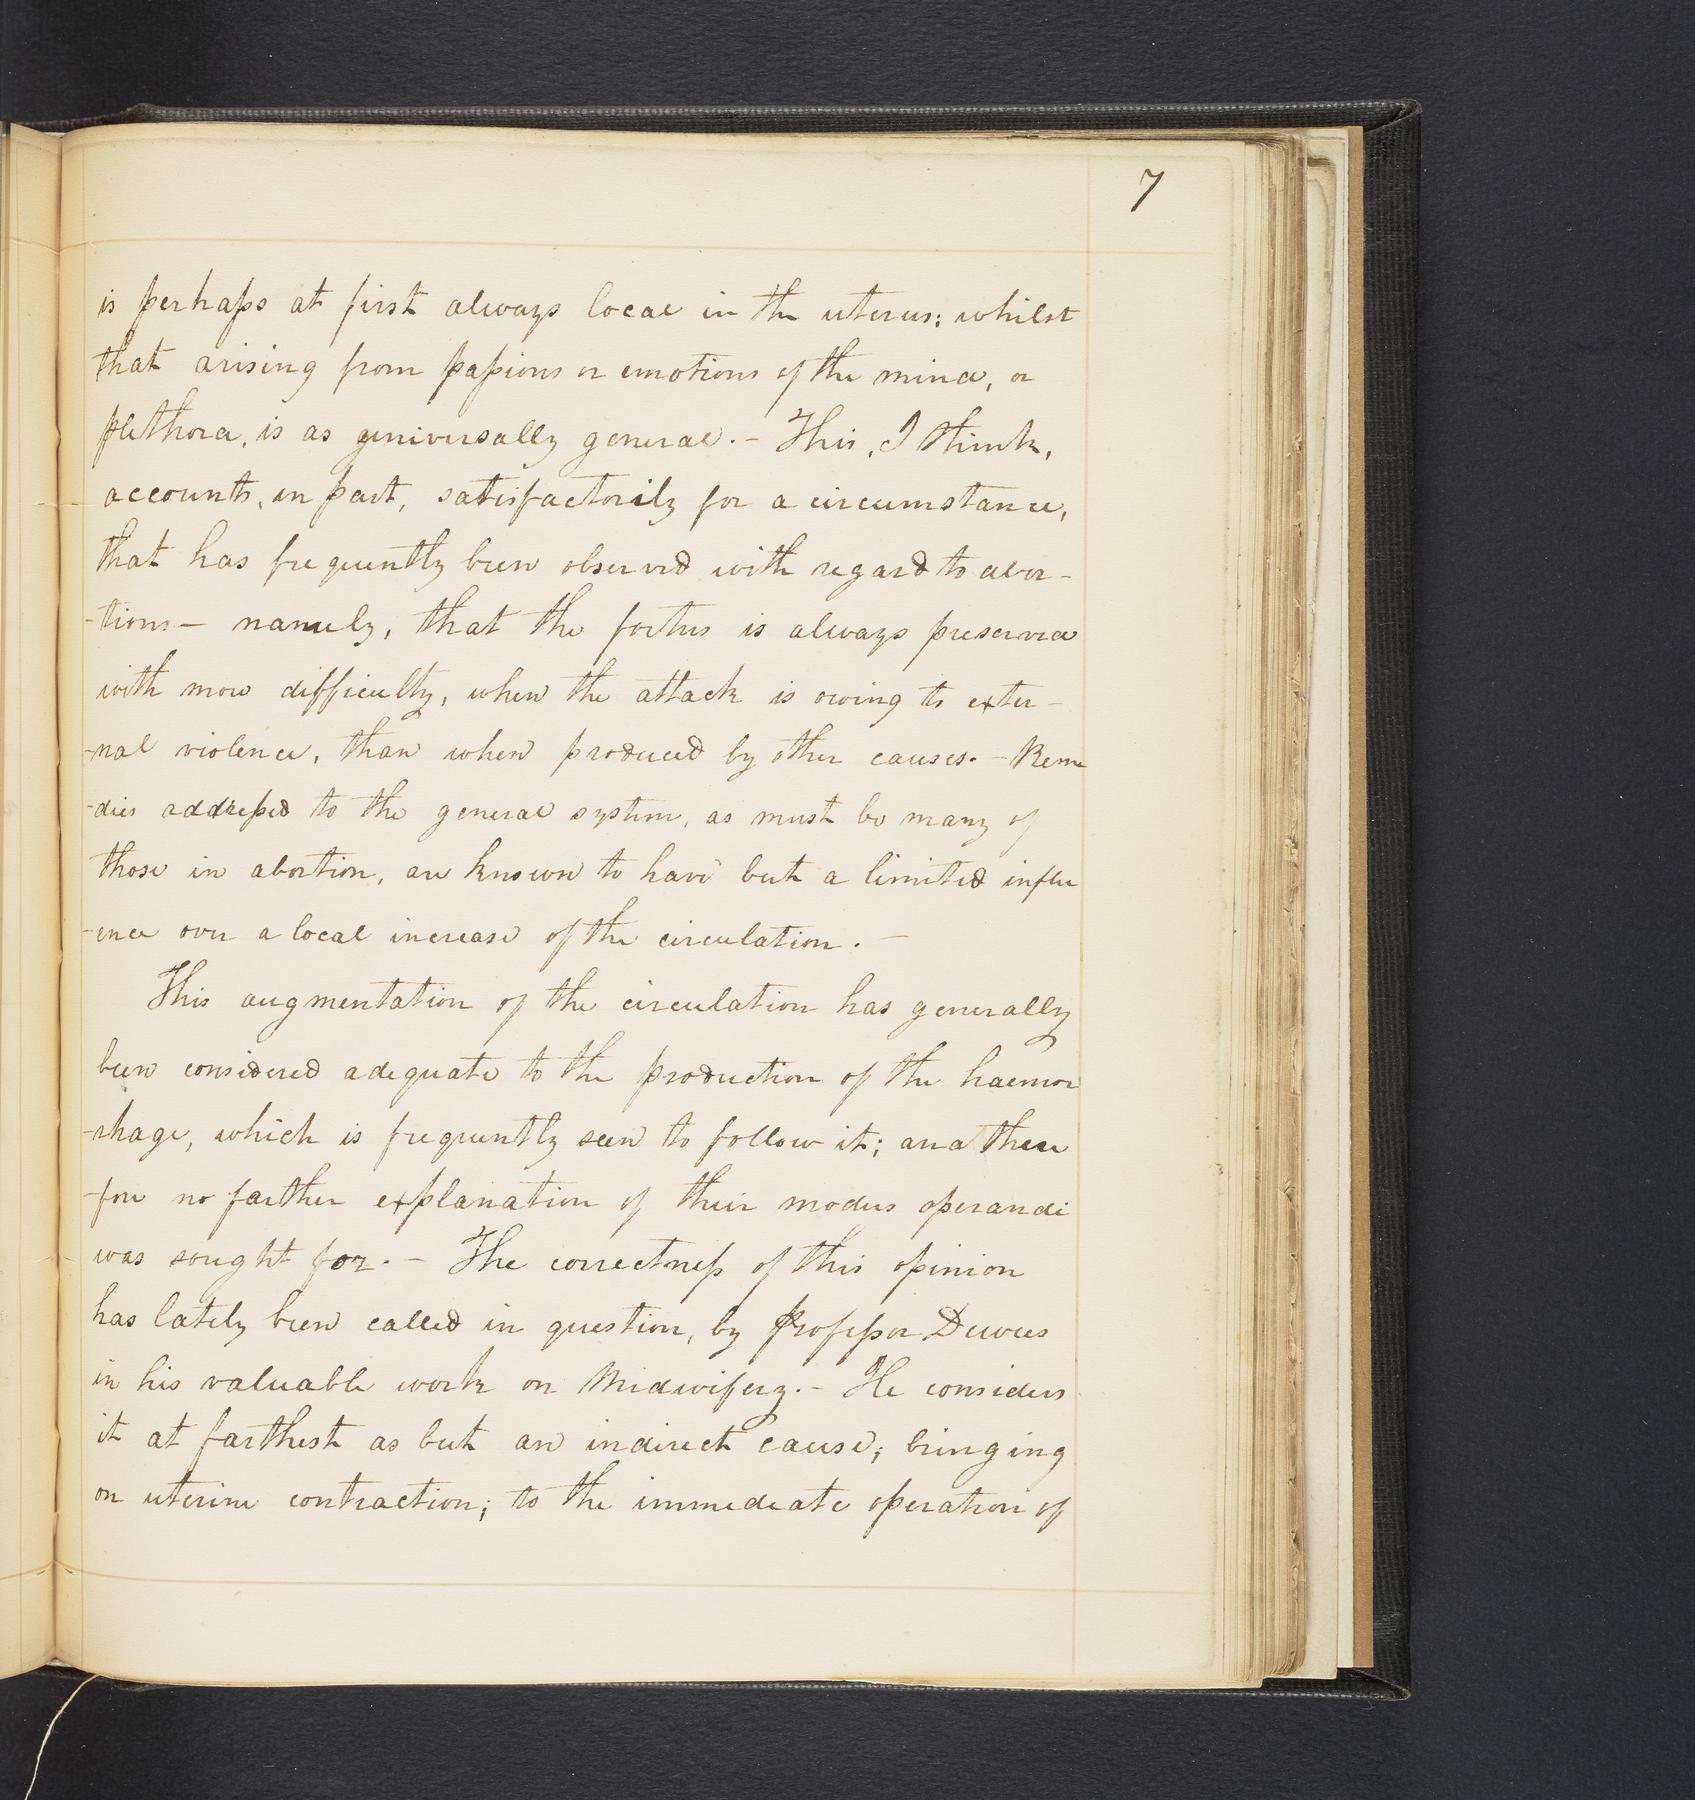 7
is perhaps at first always local in the uterus; whilst
that arising from passions or emotions of the mind, or
plethora, is as universally general. - This, I think,
accounts, in part, satisfactorily for a circumstance,
that has frequently been observed with regard to abor-
-tions - namely, that the foetus is always preserved
with more difficulty, when the attack is owing to exter-
-nal violence, than when produced by other causes. - Reme
-dies addressed to the general system, as must be many of
those in abortion, are known to have but a limited influ
-ence over a local increase of the circulation. -
This augmentation of the circulation has generally
been considered adequate to the production of the haemor
-rhage, which is frequently seen to follow it; and there
-fore no farther explanation of their modus operandi
was sought for. - The correctness of this opinion
has lately been called in question, by Professor Dewees
in his valuable work on Midwifery. - He considers
it at farthest as but an indirect cause; bringing
on uterine contraction; to the immediate operation of